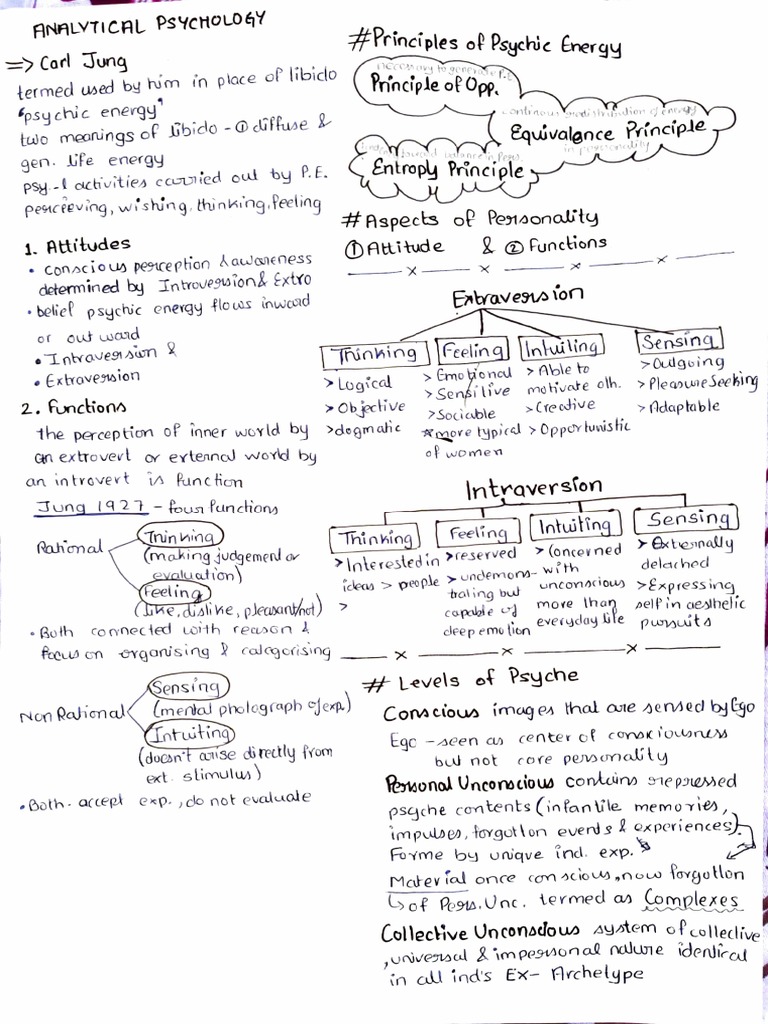 ANALYTICAL PSYCHOLOGY
=> Carl Jung
termed used by him in place of libido
"psychic energy"
two meanings of libido - ① diffuse &
gen. life energy
psy-l activities carried out by P.E.
perceeving, wishing, thinking, feeling
1. Attitudes
• conscious perception & awareness
determined by Introversion & Extro
• belief psychic energy flows inward
or out ward
• Intraversion &
• Extraversion
2. Functions
the perception of inner world by
an extrovert or external world by
an introvert is function
Jung 1927 - four functions
Rational
Thinking
(making judgement or
evaluation)
Feeling
(like, dislike, pleasant/not)
• Both connected with reason &
focus on organising & categorising
Non Rational
Sensing
(mental photograph of exp.)
Intuiting
(doesn't arise directly from
ext. stimulus)
• Both - accept exp., do not evaluate
# Principles of Psychic Energy
necessary to generate P.E
Principle of Opp.
continous redistribution of energy
Equivalence Principle
in personality
balance in Pers.
Entroply Principle
# Aspects of Personality
① Attitude & ② Functions
Extraversion
Thinking
> Logical
> Objective
> dogmatic
Feeling
> Emotional
> Sensilive
> Sociable
* more typical
of women
Intuiling
> Able to
motivate oth.
> Creative
> Opportunistic
Sensing
> Outgoing
> Pleasure Seeking
> Adaptable
Intraversion
Thinking
> Interested in
ideas > people
>
Feeling
> reserved
> undemons-
trating but
capable of
deep emotion
Intuiting
> Concerned
with
unconscious
more than
everyday life
Sensing
> Externally
detached
> Expressing
self in aesthelic
pursuits
# Levels of Psyche
Conscious images that are sensed by Ego
Ego - seen as center of consciousness
but not core personality
Personal Unconscious contains repressed
psyche contents (infantile memories,
impulses, forgotton events & experiences)
Forme by unique ind. exp.
Material once conscious, now forgotton
↳ of Pers. Unc. termed as Complexes
Collective Unconscious system of collective
, universal & impersonal nature identical
in all ind's Ex- Archetype